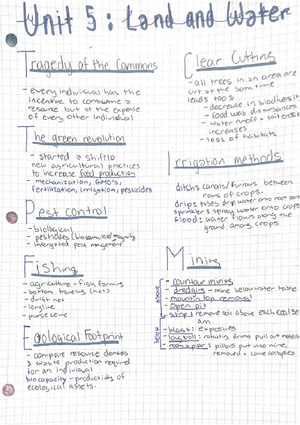 Unit 5: Land and Water
Tragedy of the Commons
- every individual has the
incentive to consume a
resource but at the expense
of every other individual
The green revolution
- started a shift to
new agricultural practices
to increase food production
- mechanization, GMO's,
fertilization, irrigation, pesticides
Pest control
- biological
- pesticides
- integrated pest
Fishing
- aquaculture - fish farms
- bottom trawling (net)
- drift net
- longline
- purse seine
Ecological Footprint
- compare resource
& waste production required
for an individual
biocapacity - productivity of
ecological assets.
Clear Cutting
- all trees in an area are
cut at the same time
leads to:
- decrease in
- food web disturbances
- water runoff + soil
increases
- loss of habitats
Irrigation methods
ditch: canals/furrows between
rows of crops.
drip: tubes drip water onto root
sprinkler: spray water onto crops
flood: water flows along the
ground among crops
Mining
- contour mining
- dredging - mine below water table
- mountaintop removal
- open pit
- strip: remove soil above each
- blast: explosives
- longwall: rotating drums pull out
- room & pillar: pillars put into mine,
removed + cave